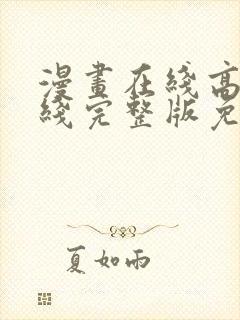 漫畫在綫高
綫完整版免
夏如雨